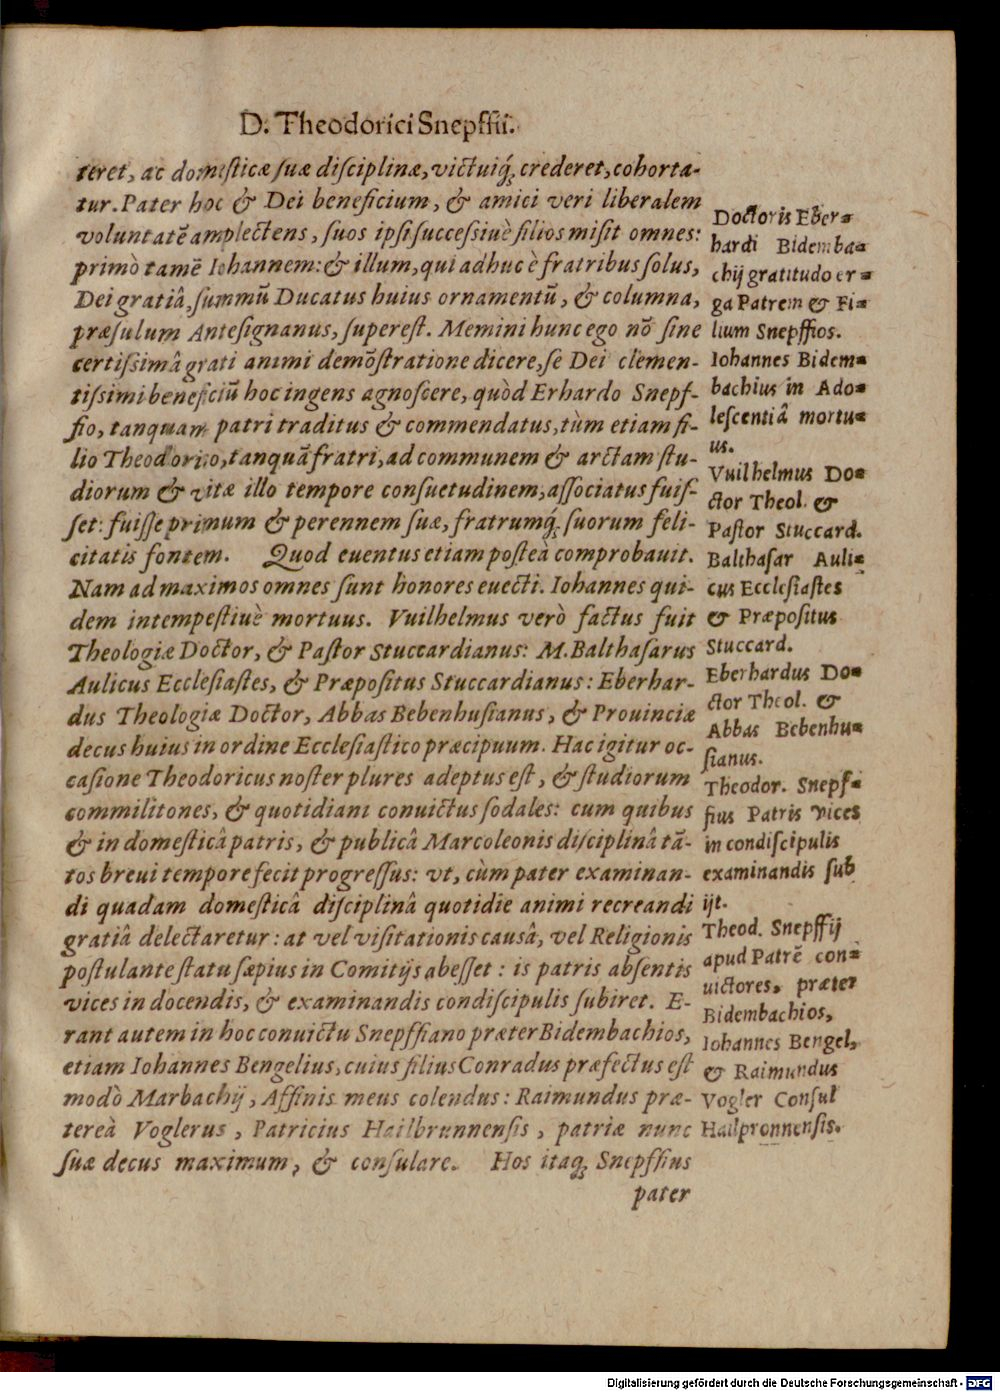 D. Theodorici Snepffii.
teret, ac domesticæ suæ disciplinæ, victuiq́; crederet, cohorta-
tur. Pater hoc & Dei beneficium, & amici veri liberalem
voluntatē amplectens, suos ipsi successiuè filios misit omnes:
primò tamē Iohannem: & illum, qui adhuc è fratribus solus,
Dei gratiâ, summū Ducatus huius ornamentū, & columna,
præsulum Antesignanus, superest. Memini hunc ego nō sine
certissimâ grati animi demōstratione dicere, se Dei clemen-
tissimi beneficiū hoc ingens agnoscere, quòd Erhardo Snepf-
fio, tanquam patri traditus & commendatus, tùm etiam fi-
lio Theodorico, tanquā fratri, ad communem & arctam stu-
diorum & vitæ illo tempore consuetudinem, associatus fuis-
set: fuisse primum & perennem suæ, fratrumq́; suorum feli-
citatis fontem. Quod euentus etiam posteà comprobauit.
Nam ad maximos omnes sunt honores euecti. Iohannes qui-
dem intempestiuè mortuus. Vuilhelmus verò factus fuit
Theologiæ Doctor, & Pastor Stuccardianus: M. Balthasarus
Aulicus Ecclesiastes, & Præpositus Stuccardianus: Eberhar-
dus Theologiæ Doctor, Abbas Bebenhusianus, & Prouinciæ
decus huius in ordine Ecclesiastico præcipuum. Hac igitur oc-
casione Theodoricus noster plures adeptus est, & studiorum
commilitones, & quotidiani conuictus sodales: cum quibus
& in domesticâ patris, & publicâ Marcoleonis disciplinâ tā-
tos breui tempore fecit progressus: vt, cùm pater examinan-
di quadam domesticâ disciplinâ quotidie animi recreandi
gratiâ delectaretur: at vel visitationis causâ, vel Religionis
postulante statu sæpius in Comitijs abesset: is patris absentis
vices in docendis, & examinandis condiscipulis subiret. E-
rant autem in hoc conuictu Snepffiano præter Bidembachios,
etiam Iohannes Bengelius, cuius filius Conradus præfectus est
modò Marbachij, Affinis meus colendus: Raimundus præ-
tereà Voglerus, Patricius Hailbrunnensis, patriæ nunc
suæ decus maximum, & consulare. Hos itaq́; Snepffius
pater
Doctoris Eber-
hardi Bidemba-
chij gratitudo er-
ga Patrem & Fi-
lium Snepffios.
Iohannes Bidem-
bachius in Ado-
lescentiâ mortu-
us.
Vuilhelmus Do-
ctor Theol. &
Pastor Stuccard.
Balthasar Auli-
cus Ecclesiastes
& Præpositus
Stuccard.
Eberhardus Do-
ctor Theol. &
Abbas Bebenhu-
sianus.
Theodor. Snepf-
fius Patris vices
in condiscipulis
examinandis sub
ijt.
Theod. Snepffij
apud Patrē con-
uictores, præter
Bidembachios,
Iohannes Bengel,
& Raimundus
Vogler Consul
Hailpronnensis.
Digitalisierung gefördert durch die Deutsche Forschungsgemeinschaft - DFG